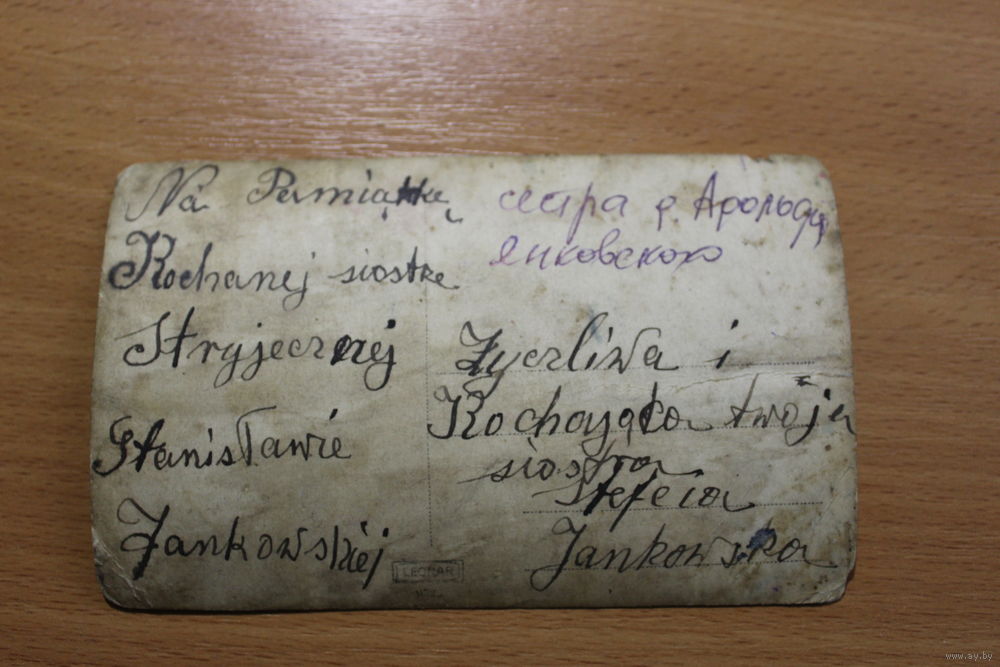 Na Pamiątkę
Kochanej siostrze
Stryjecznej
Stanisławie
Jankowskiej
сестра
Янковского
Życzliwa i
Kochająca twoja
siostra
Stefcia
Jankowska
LEONAR
www.ay.by